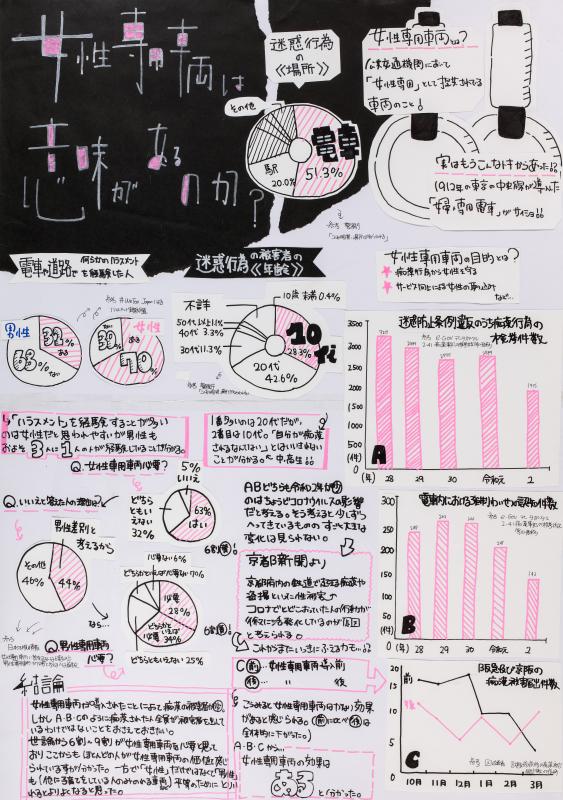 女性専用車両は
意味があるのか?
迷惑行為
の
《場所》
その他
駅
20.0%
電車
51.3%
女性専用車両とは?
公共交通機関において
「女性専用」として指定されてる
車両のこと!
実はもうこんなトキからあった!?
1912年の東京の中央線が
「婦人専用電車」がサイショ
電車や道路で
何らかのハラスメント
を経験した人
男性
32%
ある
68%
ない
女性
70%
迷惑行為の被害者の
《年齢》
不詳
10歳未満0.4%
50代以上1.1%
40代 3.3%
30代11.3%
20代
42.6%
10代
28.3%
女性専用車両の目的とは?
★痴漢行為から女性を守る
★サービス向上による女性の取り込み
など…
迷惑防止条例違反のうち痴漢行為の
検挙件数
3500
3000
2500
2000
1500
1000
500
(件)
0
(年)
28
29
30
31
令和元
2
A
「ハラスメント」を経験することが多い
のは女性だと思われやすいが男性も
およそ3人に1人の人が経験していることが分かる。
1番多いのは20代だが、
2番目は10代。「自分が痴漢
されるなんてない」とはいいきれない
ことが分かる。
Q.女性専用車両必要?
5%
いいえ
どちら
ともいい
えない
32%
63%
はい
6割(要)
Q.いいえと答えた人の理由は?
男性差別と
考えるから
44%
その他
46%
なら…
Q.男性専用車両
必要?
必要ない6%
必要
28%
どちらかといえば
必要
34%
どちらともいえない25%
6割(要)
ABどちらも令和2年が少
のはちょうどコロナウイルスの影響
だと考える。そう考えると少しずつ
へってきているもののすごく大きな
変化は見られない。
京都新聞より
京都府内の鉄道で起こる痴漢や
盗撮といった性犯罪。
コロナでとどこおっていた人の行動が
活発化しているのが
と考えられる。
これからまたいっきにふえるカモ…?!
電車内における強制わいせつの認知件数
300
250
200
150
100
50
(件)
0
(年)
28
29
30
31
令和元
2
B
阪急及び京阪の
痴漢被害届出件数
20
15
10
5
0
前
後
10月
11月
12月
1月
2月
3月
C
結論
女性専用車両が導入されたことによって痴漢の被害者が
しかしA・B・Cのように痴漢された全員が被害届をして
いるわけではないことをおさえておきたい。
世論から6割~9割が女性専用車両を必要と思って
おりここからもほとんどの人が女性専用車両の価値を感じ
られている事が分かった。一方で「女性」だけではなくて「男性」
も(他に子育てをしている人のみのれる車両)平等のためにといい
れるとよりよくなると思った。
C
前…女性専用車両導入前
後… 〃 後
こうみると女性専用車両は少ない効果
があると感じられる。(前にくらべ後は
全体的に下がった)
A・B・Cから…
女性専用車両の効果は
ある
と分かった。